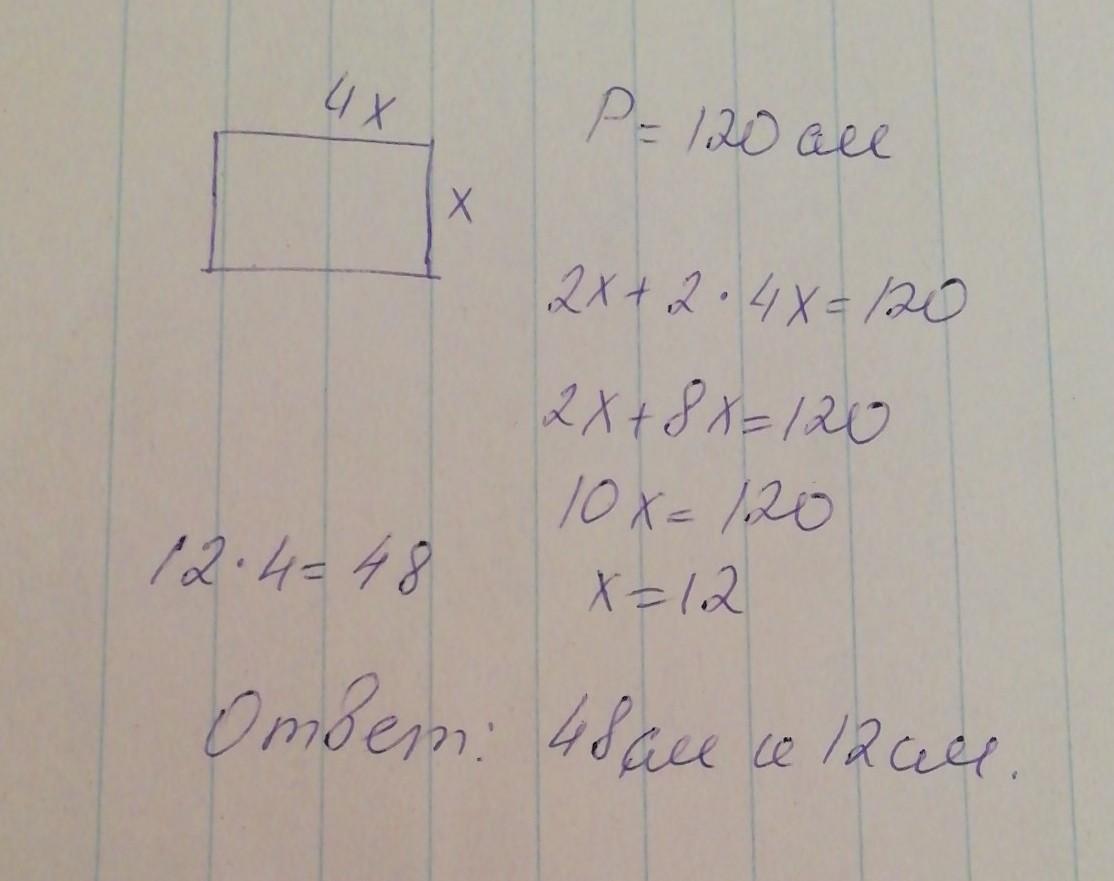 4x
x
P = 120 см
2x + 2 · 4x = 120
2x + 8x = 120
10x = 120
x = 12
12 · 4 = 48
Ответ: 48 см и 12 см.